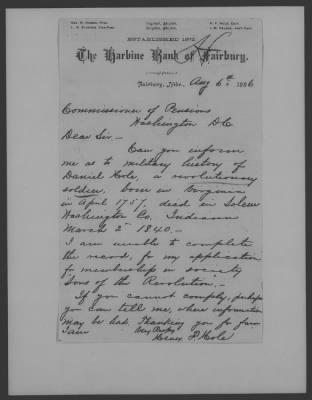 ESTABLISHED 1873
The Harbine Bank of Fairbury.
Fairbury, Nebr., Aug 6th 1896
Commissioner of Pensions
Washington DC
Dear Sir.—
Can you inform
me as to military history of
Daniel Hole, a revolutionary
soldier, born in Virginia
in April 1757, died in Salem
Washington Co. Indiana
March 2d 1840.—
I am unable to complete
the record, for my application
for membership in society
Sons of the Revolution.—
If you cannot comply, perhaps
you can tell me, where information
may be had. Thanking you for favor
I am Very Respy
P. Hole